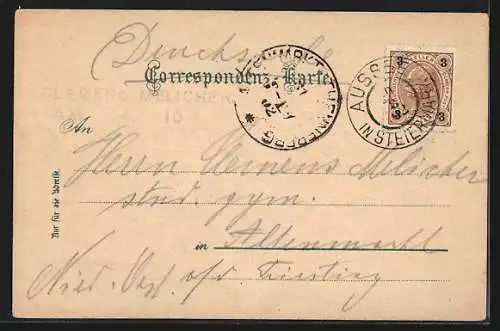 Drucksache
Correspondenz-Karte
CLEMENS MELICHER
10
3 3
3 3
AUSSEE
IN STEIERMARK
An
Herrn Clemens Melicher
stud. gym.
in Altenmarkt
Nied. Oest. a/d Triesting
Nur für die Adresse.